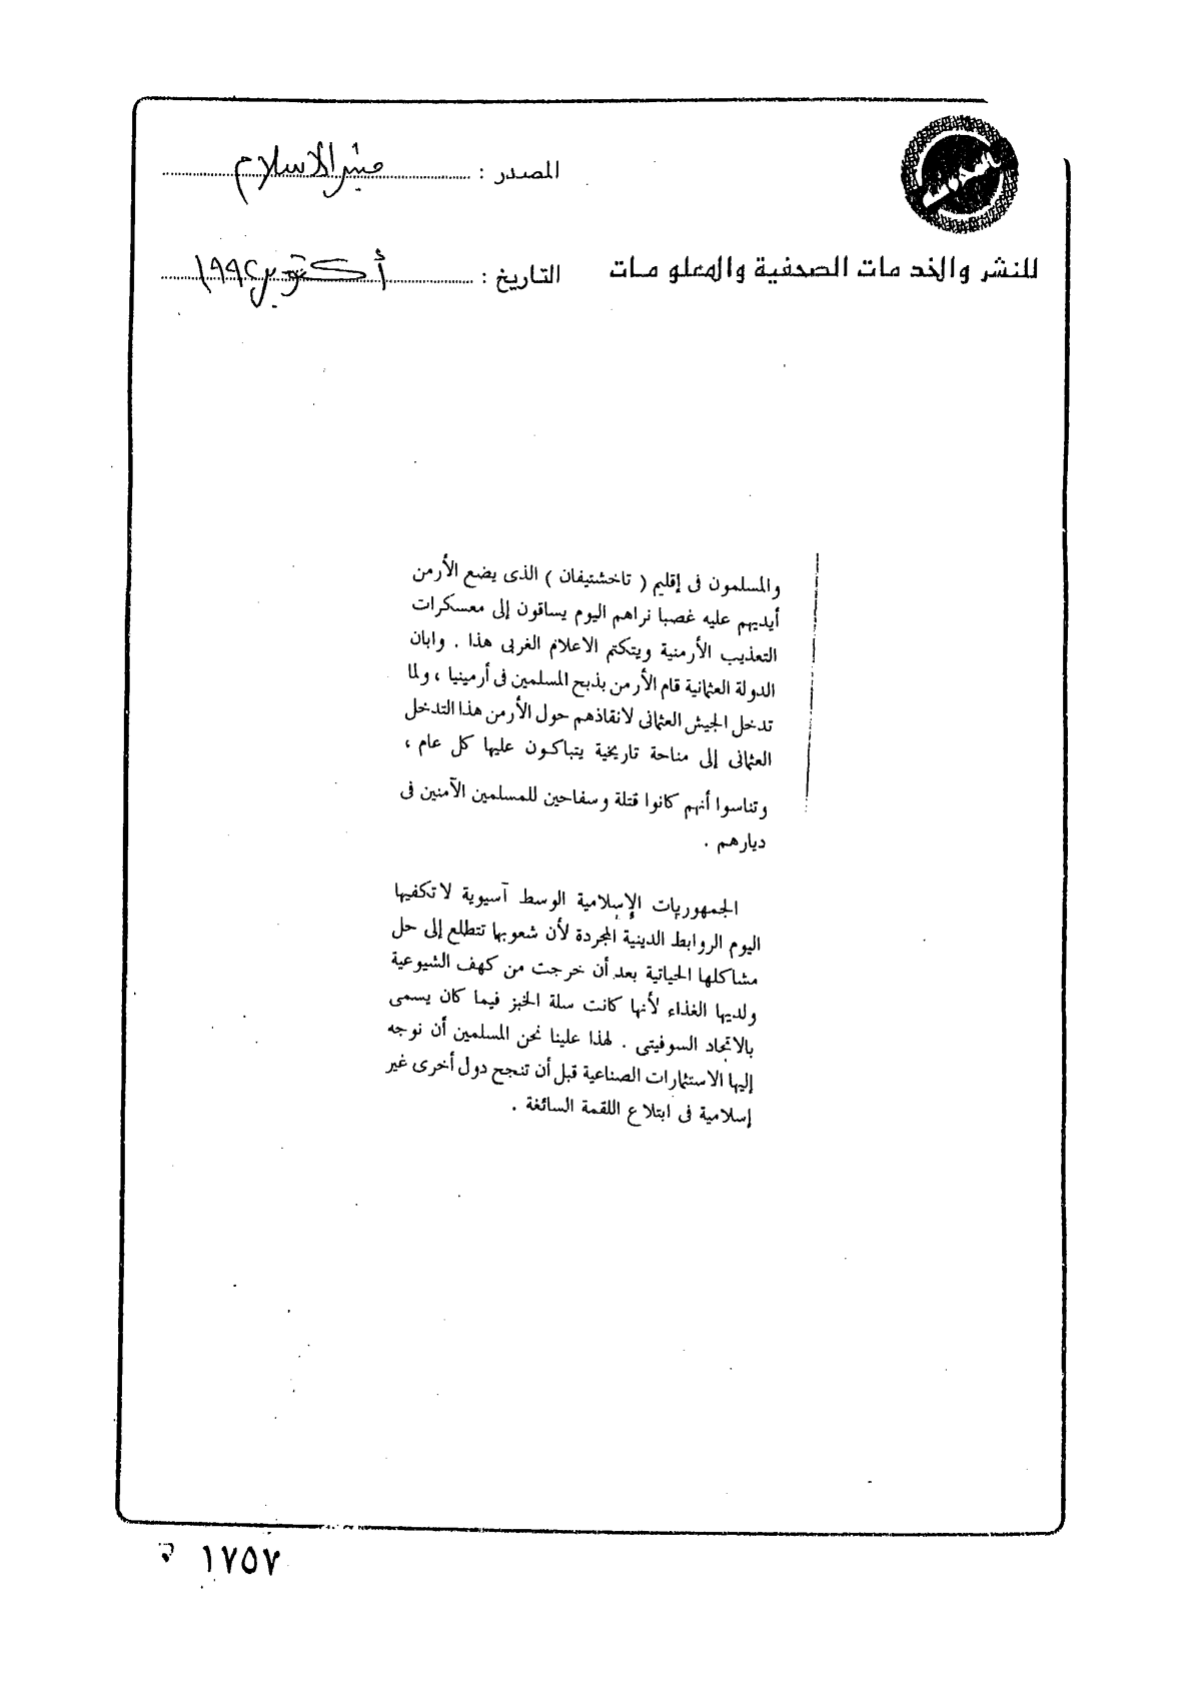 المصدر : منبر الاسلام
للنشر والخدمات الصحفية والمعلومات
التاريخ : أكتوبر ١٩٩٢
والمسلمون فى إقليم ( تاخشتيفان ) الذى يضع الأرمن
أيديهم عليه غصبا نراهم اليوم يساقون إلى معسكرات
التعذيب الأرمنية ويتكتم الاعلام الغربى هذا . وابان
الدولة العثمانية قام الأرمن بذبح المسلمين فى أرمينيا ، ولما
تدخل الجيش العثمانى لانقاذهم حول الأرمن هذا التدخل
العثمانى إلى مناحة تاريخية يتباكون عليها كل عام ،
وتناسوا أنهم كانوا قتلة وسفاحين للمسلمين الآمنين فى
ديارهم .
الجمهوريات الإسلامية الوسط آسيوية لاتكفيها
اليوم الروابط الدينية المجردة لأن شعوبها تتطلع إلى حل
مشاكلها الحياتية بعد أن خرجت من كهف الشيوعية
ولديها الغذاء لأنها كانت سلة الخبز فيما كان يسمى
بالاتحاد السوفيتى . لهذا علينا نحن المسلمين أن نوجه
إليها الاستثمارات الصناعية قبل أن تنجح دول أخرى غير
إسلامية فى ابتلاع اللقمة السائغة .
١٧٥٧